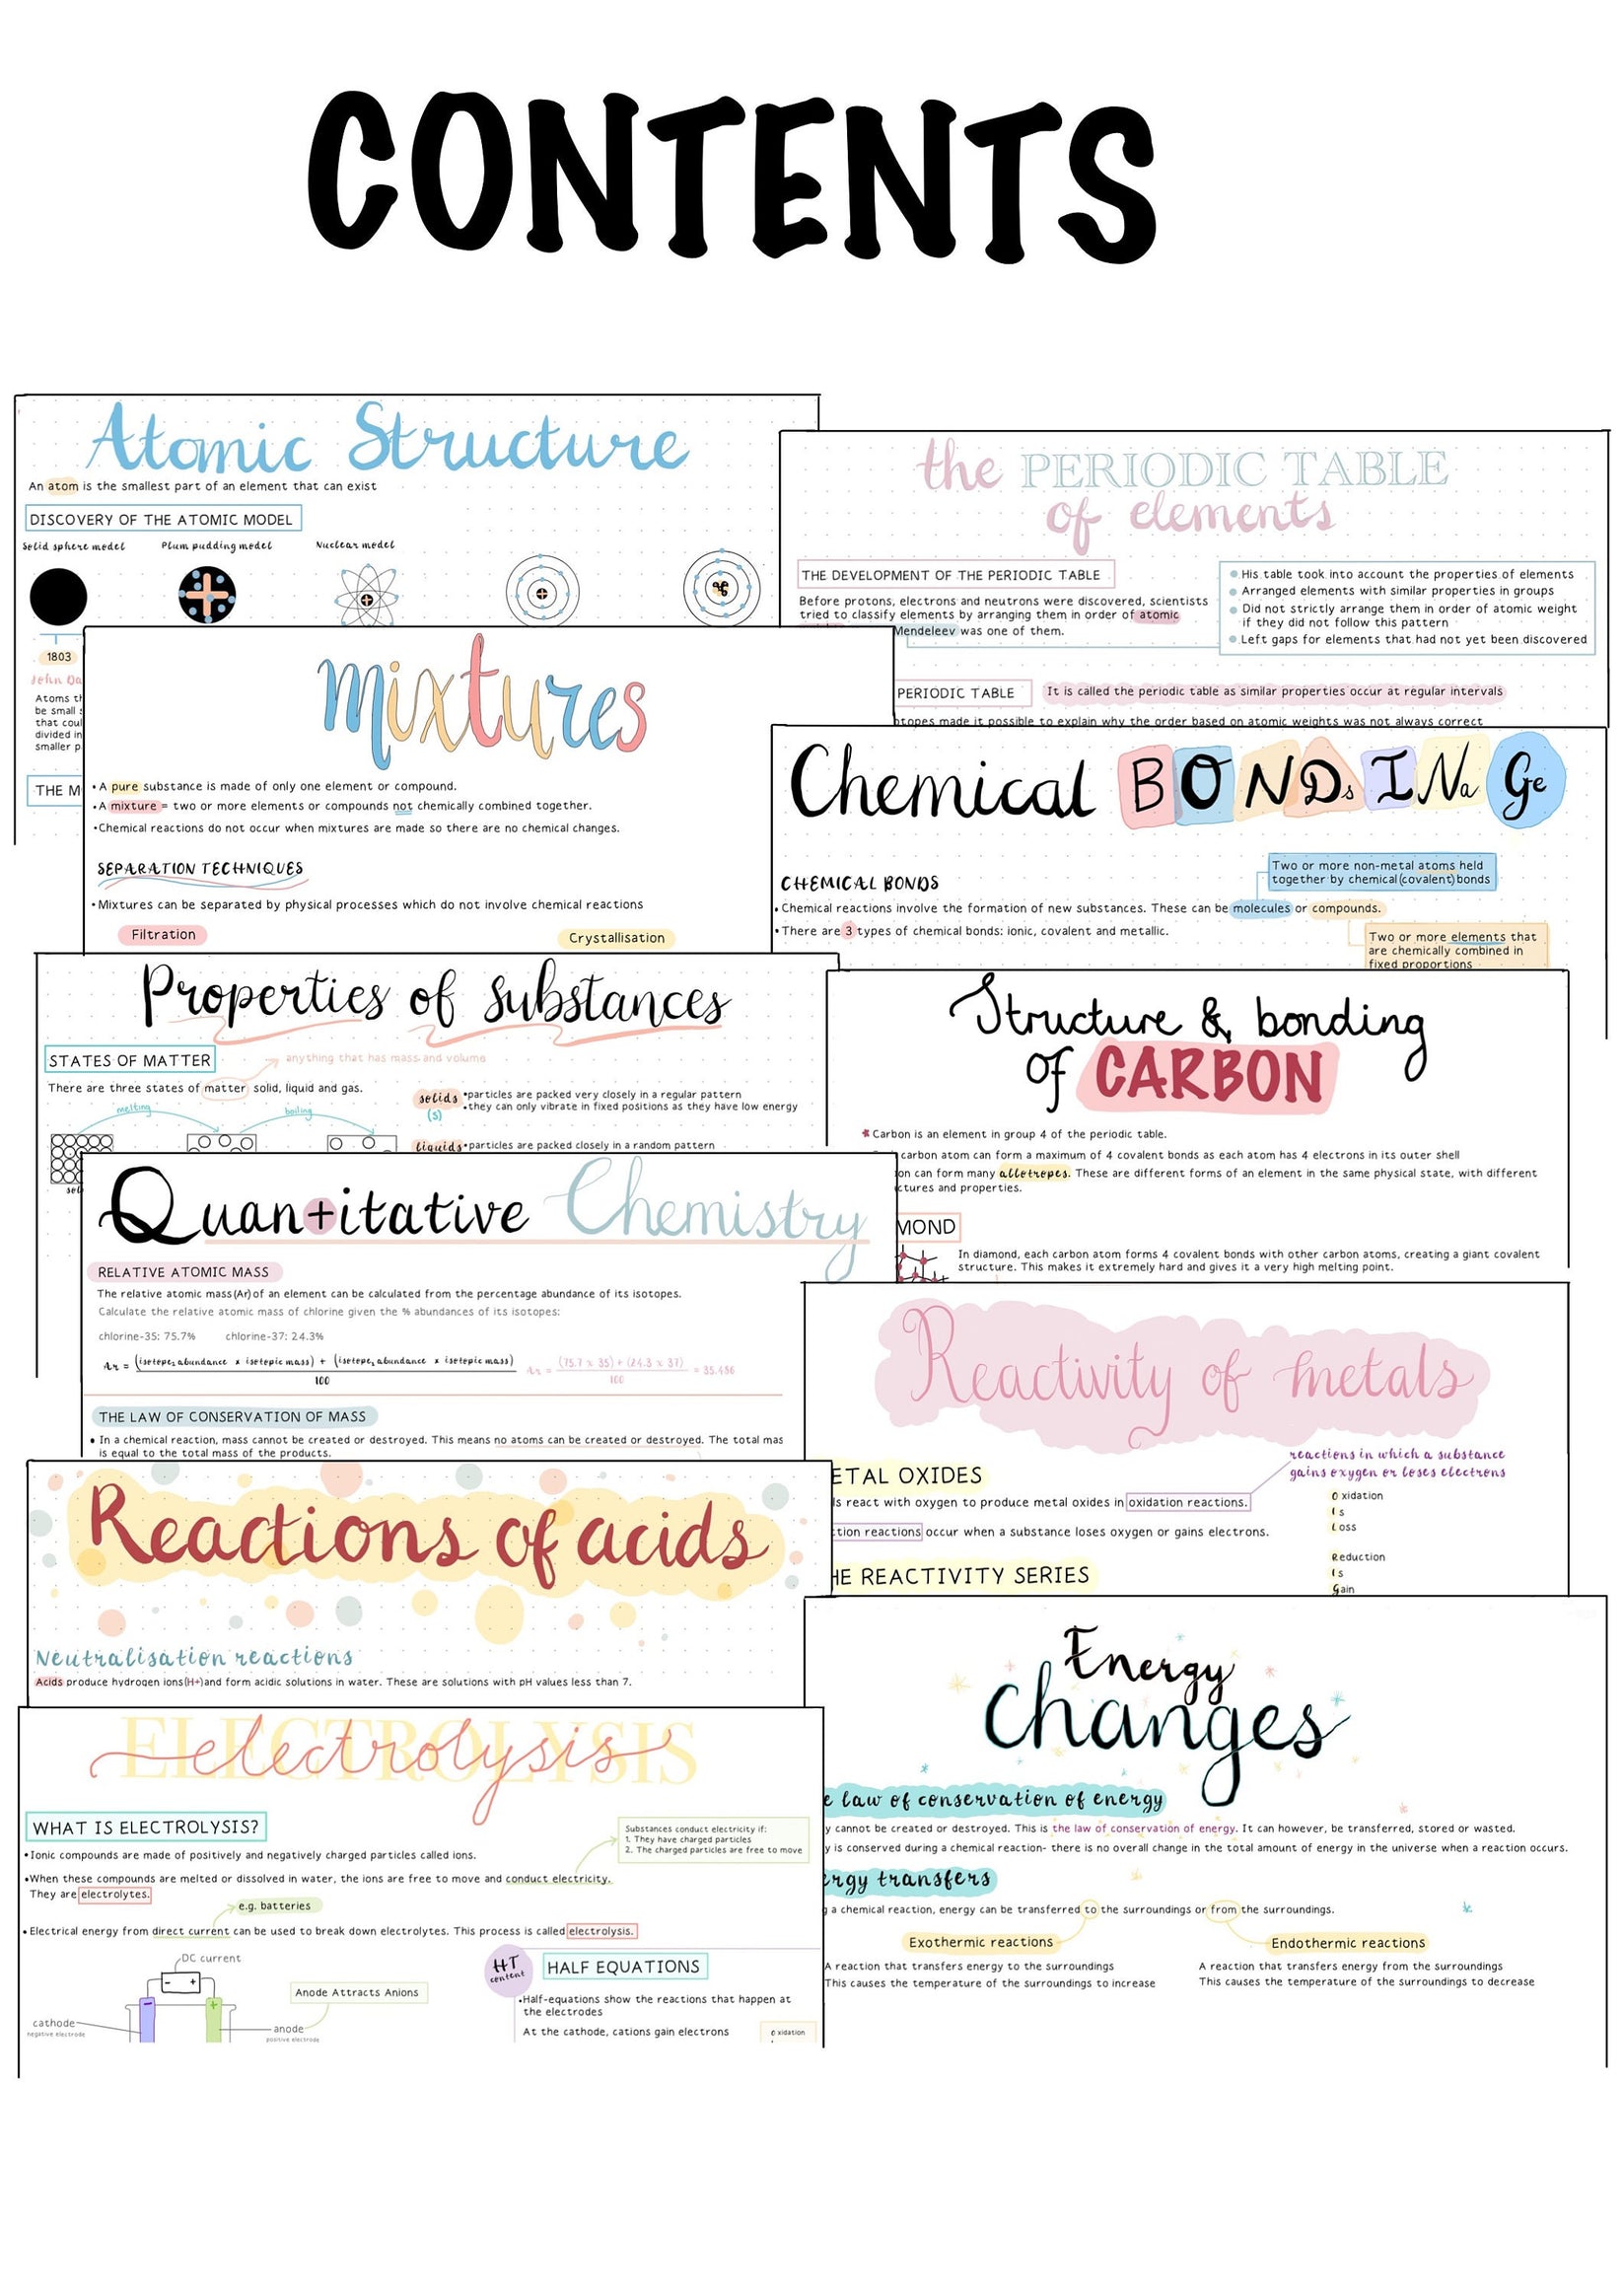 CONTENTS
Atomic Structure
An atom is the smallest part of an element that can exist
DISCOVERY OF THE ATOMIC MODEL
Solid sphere model
Plum pudding model
Nuclear model
1803
John Da
Atoms th
be small s
that coul
divided in
smaller p
THE M
the PERIODIC TABLE
of elements
THE DEVELOPMENT OF THE PERIODIC TABLE
Before protons, electrons and neutrons were discovered, scientists
tried to classify elements by arranging them in order of atomic
Mendeleev was one of them.
His table took into account the properties of elements
Arranged elements with similar properties in groups
Did not strictly arrange them in order of atomic weight
if they did not follow this pattern
Left gaps for elements that had not yet been discovered
PERIODIC TABLE
It is called the periodic table as similar properties occur at regular intervals
otopes made it possible to explain why the order based on atomic weights was not always correct
mixtures
• A pure substance is made of only one element or compound.
• A mixture = two or more elements or compounds not chemically combined together.
• Chemical reactions do not occur when mixtures are made so there are no chemical changes.
SEPARATION TECHNIQUES
• Mixtures can be separated by physical processes which do not involve chemical reactions
Filtration
Crystallisation
Chemical BONDsINaGe
Two or more non-metal atoms held
together by chemical (covalent) bonds
CHEMICAL BONDS
• Chemical reactions involve the formation of new substances. These can be molecules or compounds.
• There are 3 types of chemical bonds: ionic, covalent and metallic.
Two or more elements that
are chemically combined in
fixed proportions
Properties of substances
STATES OF MATTER
anything that has mass and volume
There are three states of matter solid, liquid and gas.
melting
boiling
sol
solids
(s)
• particles are packed very closely in a regular pattern
• they can only vibrate in fixed positions as they have low energy
liquids
• particles are packed closely in a random pattern
Structure & bonding
of CARBON
* Carbon is an element in group 4 of the periodic table.
carbon atom can form a maximum of 4 covalent bonds as each atom has 4 electrons in its outer shell
on can form many allotropes. These are different forms of an element in the same physical state, with different
ctures and properties.
MOND
In diamond, each carbon atom forms 4 covalent bonds with other carbon atoms, creating a giant covalent
structure. This makes it extremely hard and gives it a very high melting point.
Quan+itative Chemistry
RELATIVE ATOMIC MASS
The relative atomic mass (Ar) of an element can be calculated from the percentage abundance of its isotopes.
Calculate the relative atomic mass of chlorine given the % abundances of its isotopes:
chlorine-35: 75.7%
chlorine-37: 24.3%
Ar = (isotope₁ abundance x isotopic mass) + (isotope₂ abundance x isotopic mass)
100
Ar = (75.7 x 35) + (24.3 x 37) = 35.486
100
THE LAW OF CONSERVATION OF MASS
• In a chemical reaction, mass cannot be created or destroyed. This means no atoms can be created or destroyed. The total mas
is equal to the total mass of the products.
Reactivity of metals
reactions in which a substance
gains oxygen or loses electrons
ETAL OXIDES
ls react with oxygen to produce metal oxides in oxidation reactions.
ction reactions occur when a substance loses oxygen or gains electrons.
Oxidation
Is
Loss
Reduction
Is
Gain
HE REACTIVITY SERIES
Reactions of acids
Neutralisation reactions
Acids produce hydrogen ions (H+) and form acidic solutions in water. These are solutions with pH values less than 7.
Energy
changes
e law of conservation of energy
y cannot be created or destroyed. This is the law of conservation of energy. It can however, be transferred, stored or wasted.
y is conserved during a chemical reaction- there is no overall change in the total amount of energy in the universe when a reaction occurs.
ergy transfers
g a chemical reaction, energy can be transferred to the surroundings or from the surroundings.
Exothermic reactions
A reaction that transfers energy to the surroundings
This causes the temperature of the surroundings to increase
Endothermic reactions
A reaction that transfers energy from the surroundings
This causes the temperature of the surroundings to decrease
ELECTROLYSIS
electrolysis
WHAT IS ELECTROLYSIS?
Substances conduct electricity if:
1. They have charged particles
2. The charged particles are free to move
• Ionic compounds are made of positively and negatively charged particles called ions.
• When these compounds are melted or dissolved in water, the ions are free to move and conduct electricity.
They are electrolytes.
e.g. batteries
• Electrical energy from direct current can be used to break down electrolytes. This process is called electrolysis.
DC current
- +
- +
Anode Attracts Anions
cathode
negative electrode
anode
positive electrode
HT
content
HALF EQUATIONS
• Half-equations show the reactions that happen at
the electrodes
At the cathode, cations gain electrons
Oxidation